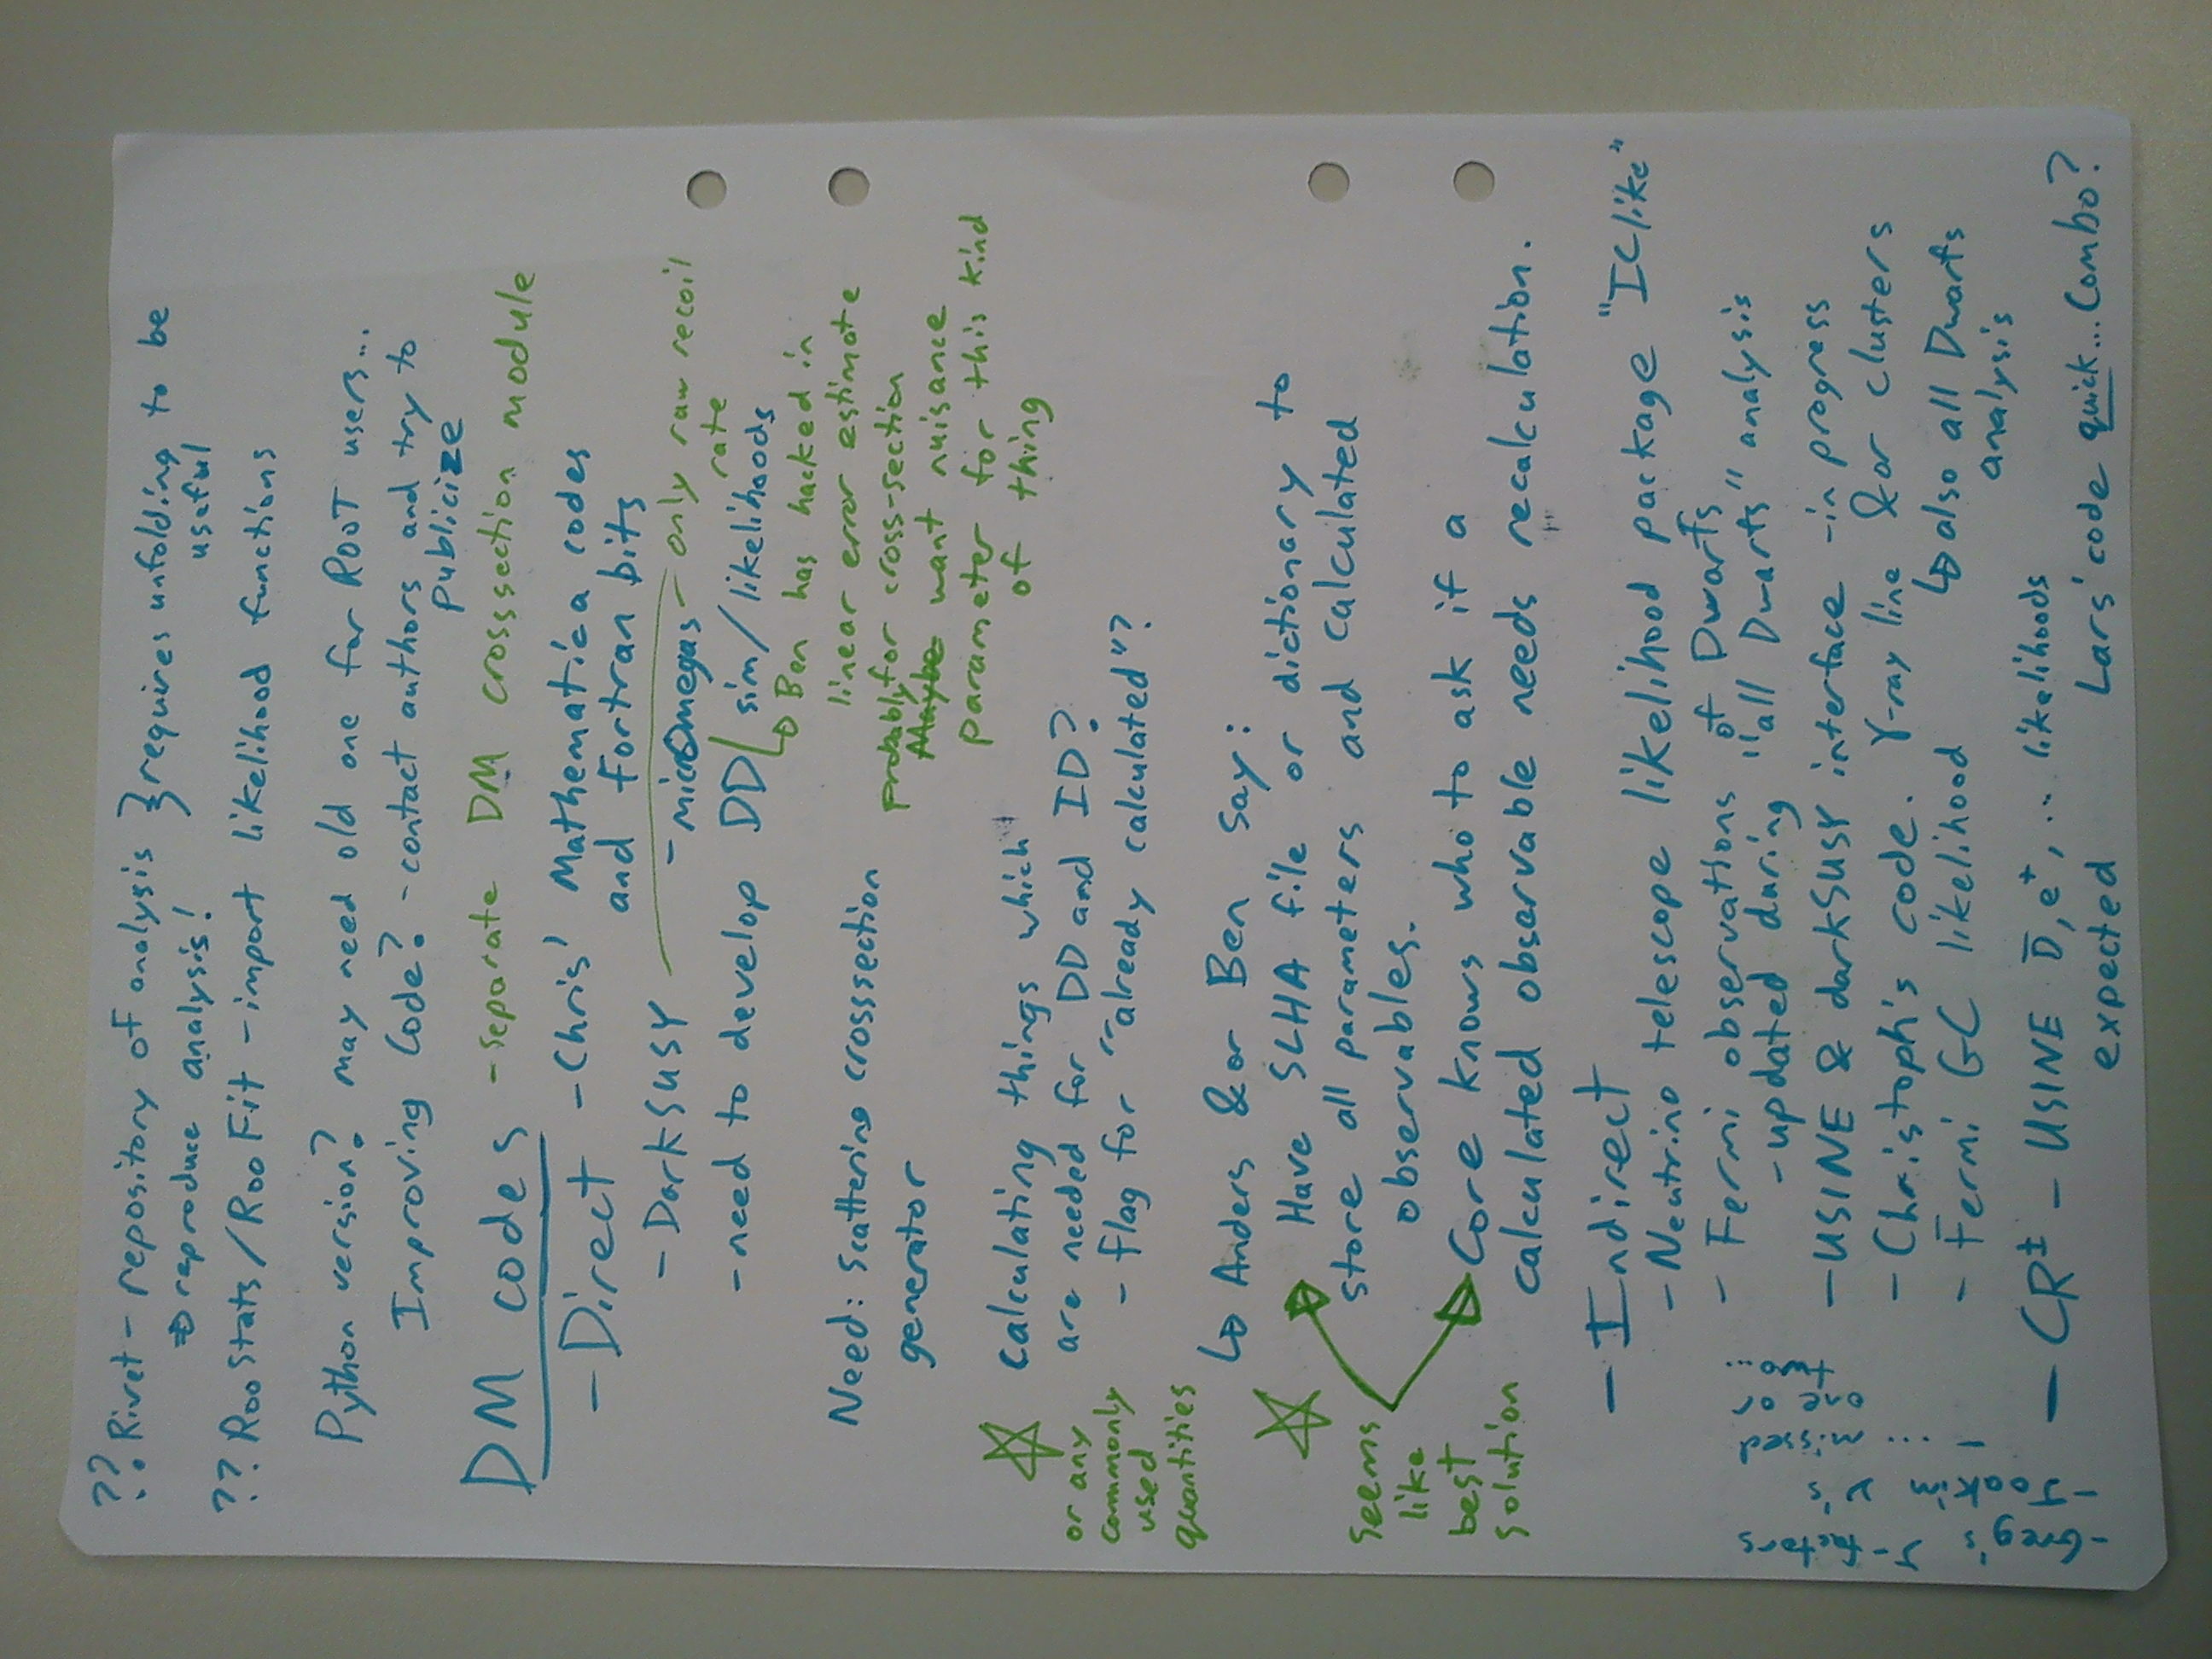 ?? Rivet - repository of analysis } requires unfolding to be
⇒ reproduce analysis! useful
?? RooStats/RooFit - import likelihood functions
Python version? may need old one for ROOT users...
Improving Code? - contact authors and try to
publicize
DM codes - separate DM crosssection module
- Direct - Chris' Mathematica codes
and Fortran bits
- DarkSUSY - micrOmegas - only raw recoil
rate
- need to develop DD sim/likelihoods
↳ Ben has hacked in
linear error estimate
for cross-section
probably
Maybe want nuisance
parameter for this kind
of thing
Need: scattering crosssection
generator
☆ calculating things which
are needed for DD and ID?
- flag for "already calculated"?
or any
commonly
used
quantities
↳ Anders &or Ben say:
Have SLHA file or dictionary to
store all parameters and calculated
observables.
Core knows who to ask if a
calculated observable needs recalculation.
☆
seems
like
best
solution
- Indirect
- Neutrino telescope likelihood package "IClike"
- Fermi observations of Dwarfs
- updated during "all Dwarfs" analysis
- USINE & darkSUSY interface - in progress
- Christoph's code. γ-ray line &or clusters
↳ also all Dwarfs
analysis
- Fermi GC likelihood
- CR± - USINE D̄, e⁺, .. likelihoods
expected
Lars' code quick... Combo?
- Greg's J-factors
- Joakim ν's
- ... missed
one or
two...